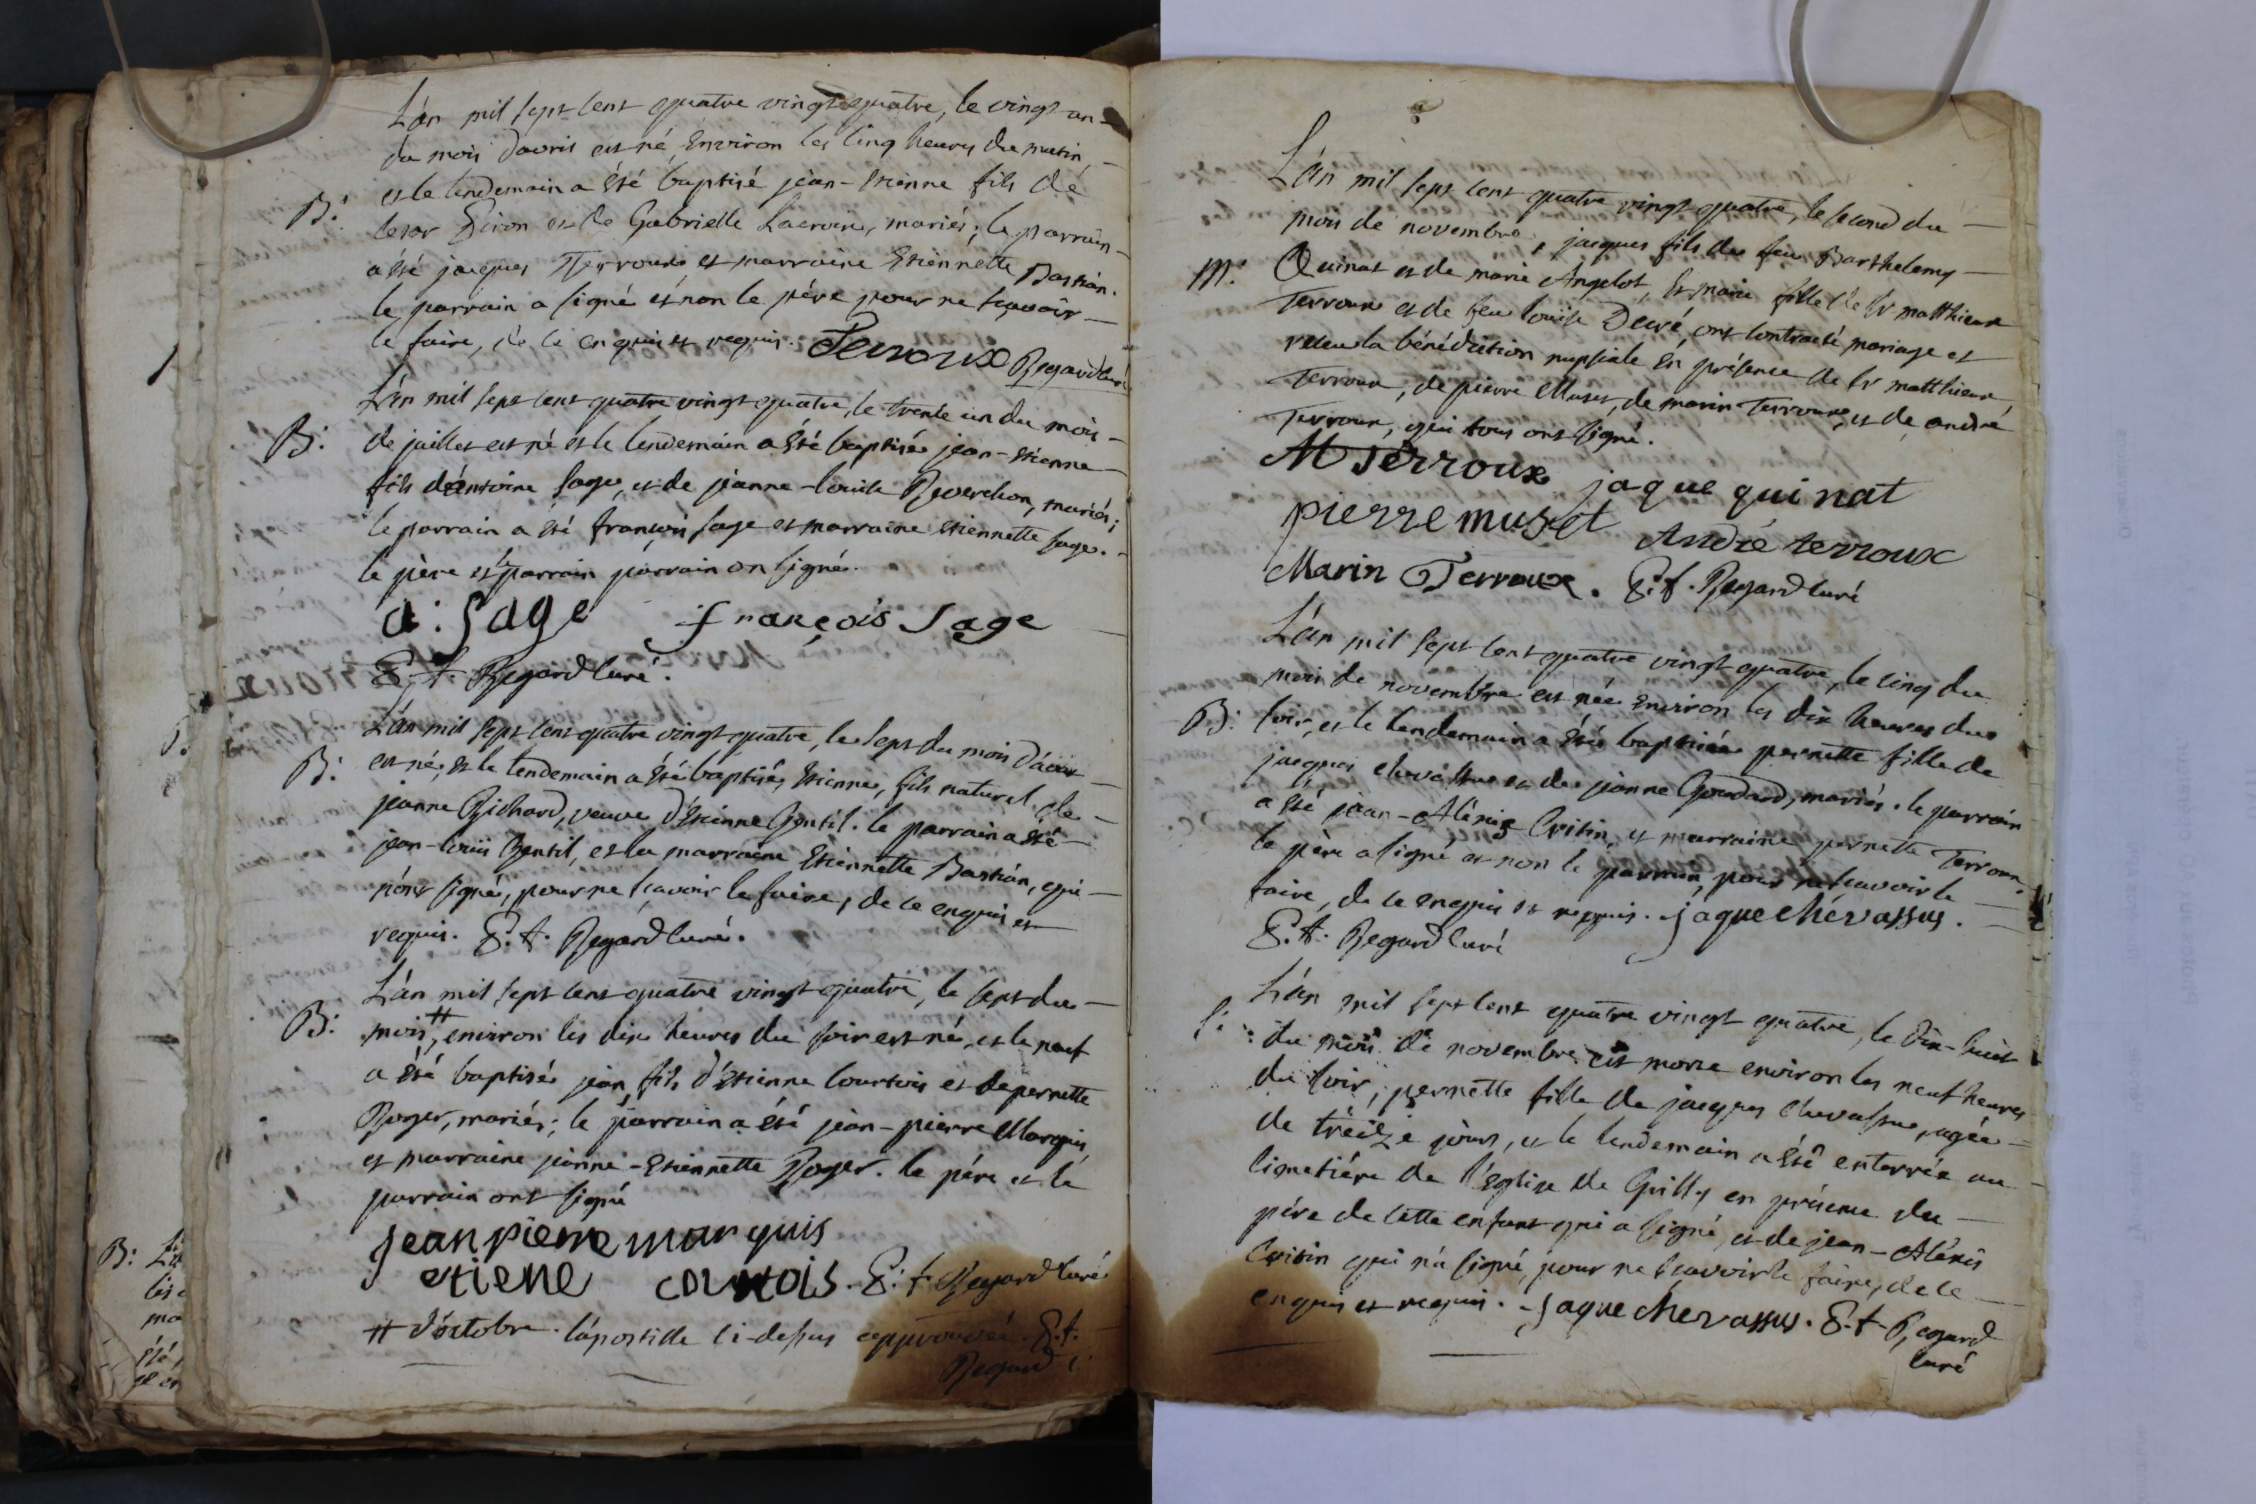 L'án mil sept cent quatre vingt quatre, le vingt un
du mois d'avril est né environ les cinq heures du matin,
et le lendemain a été baptisé jean-etienne fils de
B:
Cesar Giron et de Gabrielle Lacroix, mariés; le parrain
a été jacques Terroux et marraine Etiennette Bastian.
le parrain a signé et non le père pour ne sçavoir
le faire, de ce enquis et requis. Terroux Regard curé
L'án mil sept cent quatre vingt quatre, le trente un du mois
B:
de juillet est né et le lendemain a été baptisé jean-etienne
fils d'antoine Sage, et de jeanne-louise Reverchon, mariés;
le parrain a été françois Sage et marraine etiennette Sage.
le père et le parrain parrain on signé.
a: Sage françois Sage
E. t. Regard curé.
L'án mil sept cent quatre vingt quatre, le sept du mois d'aoust
B:
est né, et le lendemain a été baptisé, Etienne, fils naturel de
jeanne Richard, veuve d'Etienne Gentil. le parrain a été
jean-louis Gentil, et la marraine Etiennette Bastian, qui
n'ont signé, pour ne sçavoir le faire, de ce enquis et
requis. E. t. Regard curé.
L'án mil sept cent quatre vingt quatre, le sept du
B:
mois #, environ les dix heures du soir est né, et le neuf
a été baptisé jean fils d'Etienne Courtois et de pernette
Roger, mariés; le parrain a été jean-pierre Marquis
et marraine jeanne-Etiennette Roger. le père et le
parrain ont signé
jean pierre marquis
etiene courtois. E. t. Regard curé
# d'octobre. l'apostille ci-dessus approuvée. E. t.
Regard c:
L'án mil sept cent quatre vingt quatre, le second du
mois de novembre, jacques fils de feu Barthelemy
M:
Quinat et de marie Angelot, et marie fille de Sr matthieu
Terroux et de feu louise Decré, ont contracté mariage et
receu la bénédiction nuptiale en présence de Sr matthieu
Terroux, de pierre Muset, de marin Terroux, et de andré
Terroux, qui tous ont signé.
M terroux jaque quinat
pierre muset André terroux
Marin Terroux. E. t. Regard curé
L'án mil sept cent quatre vingt quatre, le cinq du
mois de novembre est née environ les dix heures du
B:
soir, et le lendemain a été baptisée pernette fille de
jacques chevassus et de jeanne Goudard, mariés. le parrain
a été jean-Aléxis Cristin, et marraine pernette Terroux.
le père a signé et non le parrain, pour ne sçavoir le
faire, de ce enquis et requis. jaque chevassus.
E. t. Regard curé
L'án mil sept cent quatre vingt quatre, le dix-huit
S:
du mois de novembre est morte environ les neuf heures
du soir, pernette fille de jacques chevassus, agée
de tréize jours, et le lendemain a été enterrée au
cimetiére de l'Eglise de Grilly en présence du
père de cette enfant qui a signé, et de jean-Aléxis
Cristin qui n'a signé, pour ne sçavoir le faire, de ce
enquis et requis. jaque chevassus. E. t. Regard
curé
B: